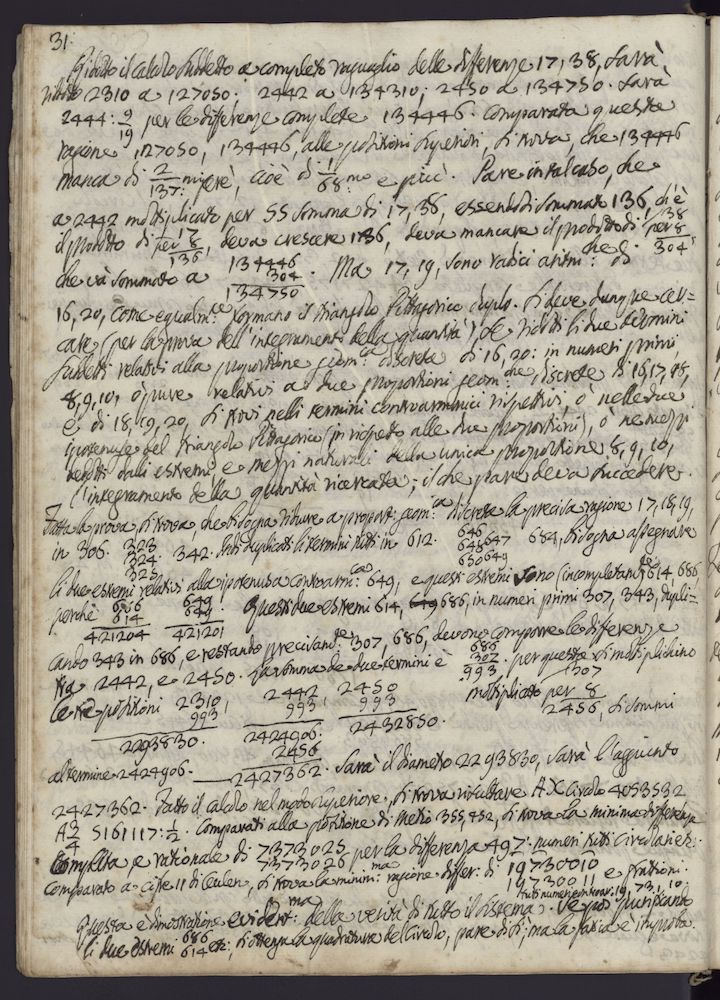 31.
Ridotto il calcolo suddetto a completo raguaglio delle differenze 17, 38, sarà,
ridotto 2310 a 127050: 2442 a 134310; 2450 a 134750. Sarà
2444: 9/19 per le differenze complete 134446. Comparata questa
ragione 127050, 134446, alle posizioni superiori, si trova, che 134446
manca di 2/137: mi perè, cioè di 1/68: mo e più. Pare in tal caso, che
a 2442 moltiplicato per 55 somma di 17, 38, essendosi sommato 136, ch'è
il prodotto di 17 per 8 136, deva crescere 136, deva mancare il prodotto di 38 per 8 304
che và sommato a 134446 304 134750. Ma 17, 19, sono radici aritm: che di
16, 20, come egualm:te formano il triangolo Pittagorico duplo. Si deve dunque cer=
care (per la prova dell'integramento della quantità) se ridotti li due termini
suddetti relativi alla proporzione geom:ca discreta di 16, 20: in numeri primi
8, 9, 10, ò pure relativi a due proporzioni geom:che discrete di 16, 17, 18,
e di 18, 19, 20, si trovi nelli termini controarmonici rispettivi, ò nelle due
ipotenuse del triangolo Pittagorico (in rispetto alle due proporzioni), ò ne mezzi
dedotti dalli estremi e mezzi naturali della unica proporzione 8, 9, 10,
l'integramento della quantità ricercata; il che pare deva succedere.
Fatta la prova, si trova, che bisogna ridurre a proporz: geom:ca discreta la precisa ragione 17, 18, 19,
in 306. 323 324 325. 342. Indi duplicati li termini tutti in 612. 646 648 650 647 649 684, bisogna assegnare
li due estremi relativi alla ipotenusa controarm:ca 649, e questi estremi sono (incompletam:te) 614, 686,
perchè 686 614 421204 649 649 421201 Questi due estremi 614, 686, in numeri primi 307, 343, dupli=
cando 343 in 686, e restando precisam:te 307, 686, devono comporre le differenze
trà 2442, e 2450. La somma de due termini è 686 307 993. per questa si moltiplichino
le trè posizioni 2310, 993 2293830. 2442, 993, 2424906. 2450 993 2432850. moltiplicato 307 per 8 2456, si sommi
al termine 2424906. 2456 2427362. Sarà il diametro 2293830, sarà l'aggiunto
2427362. Fatto il calcolo nel modo superiore, si trova risultare AX Circolo 4053532
A 3/4 5161117: 1/2. Comparati alla posizione di Mezio 355, 452, si trova la minima differenza
completa, e rationale di 7373025 7373026 per la differenza 497: numeri tutti Circolari etc:
Comparato a cifre 11 di Ceulen, si trova la minim:ma ragione differ: di 19730010 19730011 e frationi.
tutti numeri in trovar: 19, 73, 1, 10
Questa è dimostratione evident:ma della verità di tutto il sistema. Se poi purificando
li due estremi 686 614 etc: si ottenga la quadratura del Circolo, pare di sì; ma la fatica è improba.